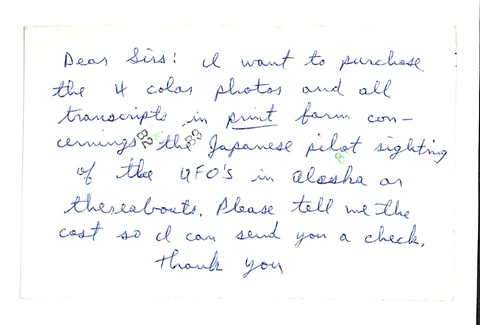 Dear Sirs: I want to purchase
the 4 color photos and all
transcripts in print form con-
cernings the Japanese pilot sighting
of the UFO'S in Alaska or
thereabouts. Please tell me the
cost so I can send you a check.
Thank you